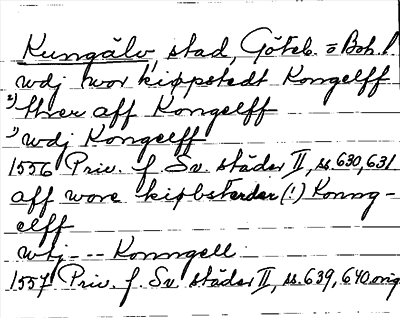 Kungälv, stad, Göteb. o Boh. l.
wdj wor kiøpstedt Kongelff
2) Hrer aff Kongelff
1) wdj Kongelff
1556 Priv. f. Sv. städer II, ss. 630, 631
aff wore kiøbsterder (!) Konng-
elff
wtj --- Konngell
1557 Priv. f. Sv. städer II, ss. 639, 640. orig.